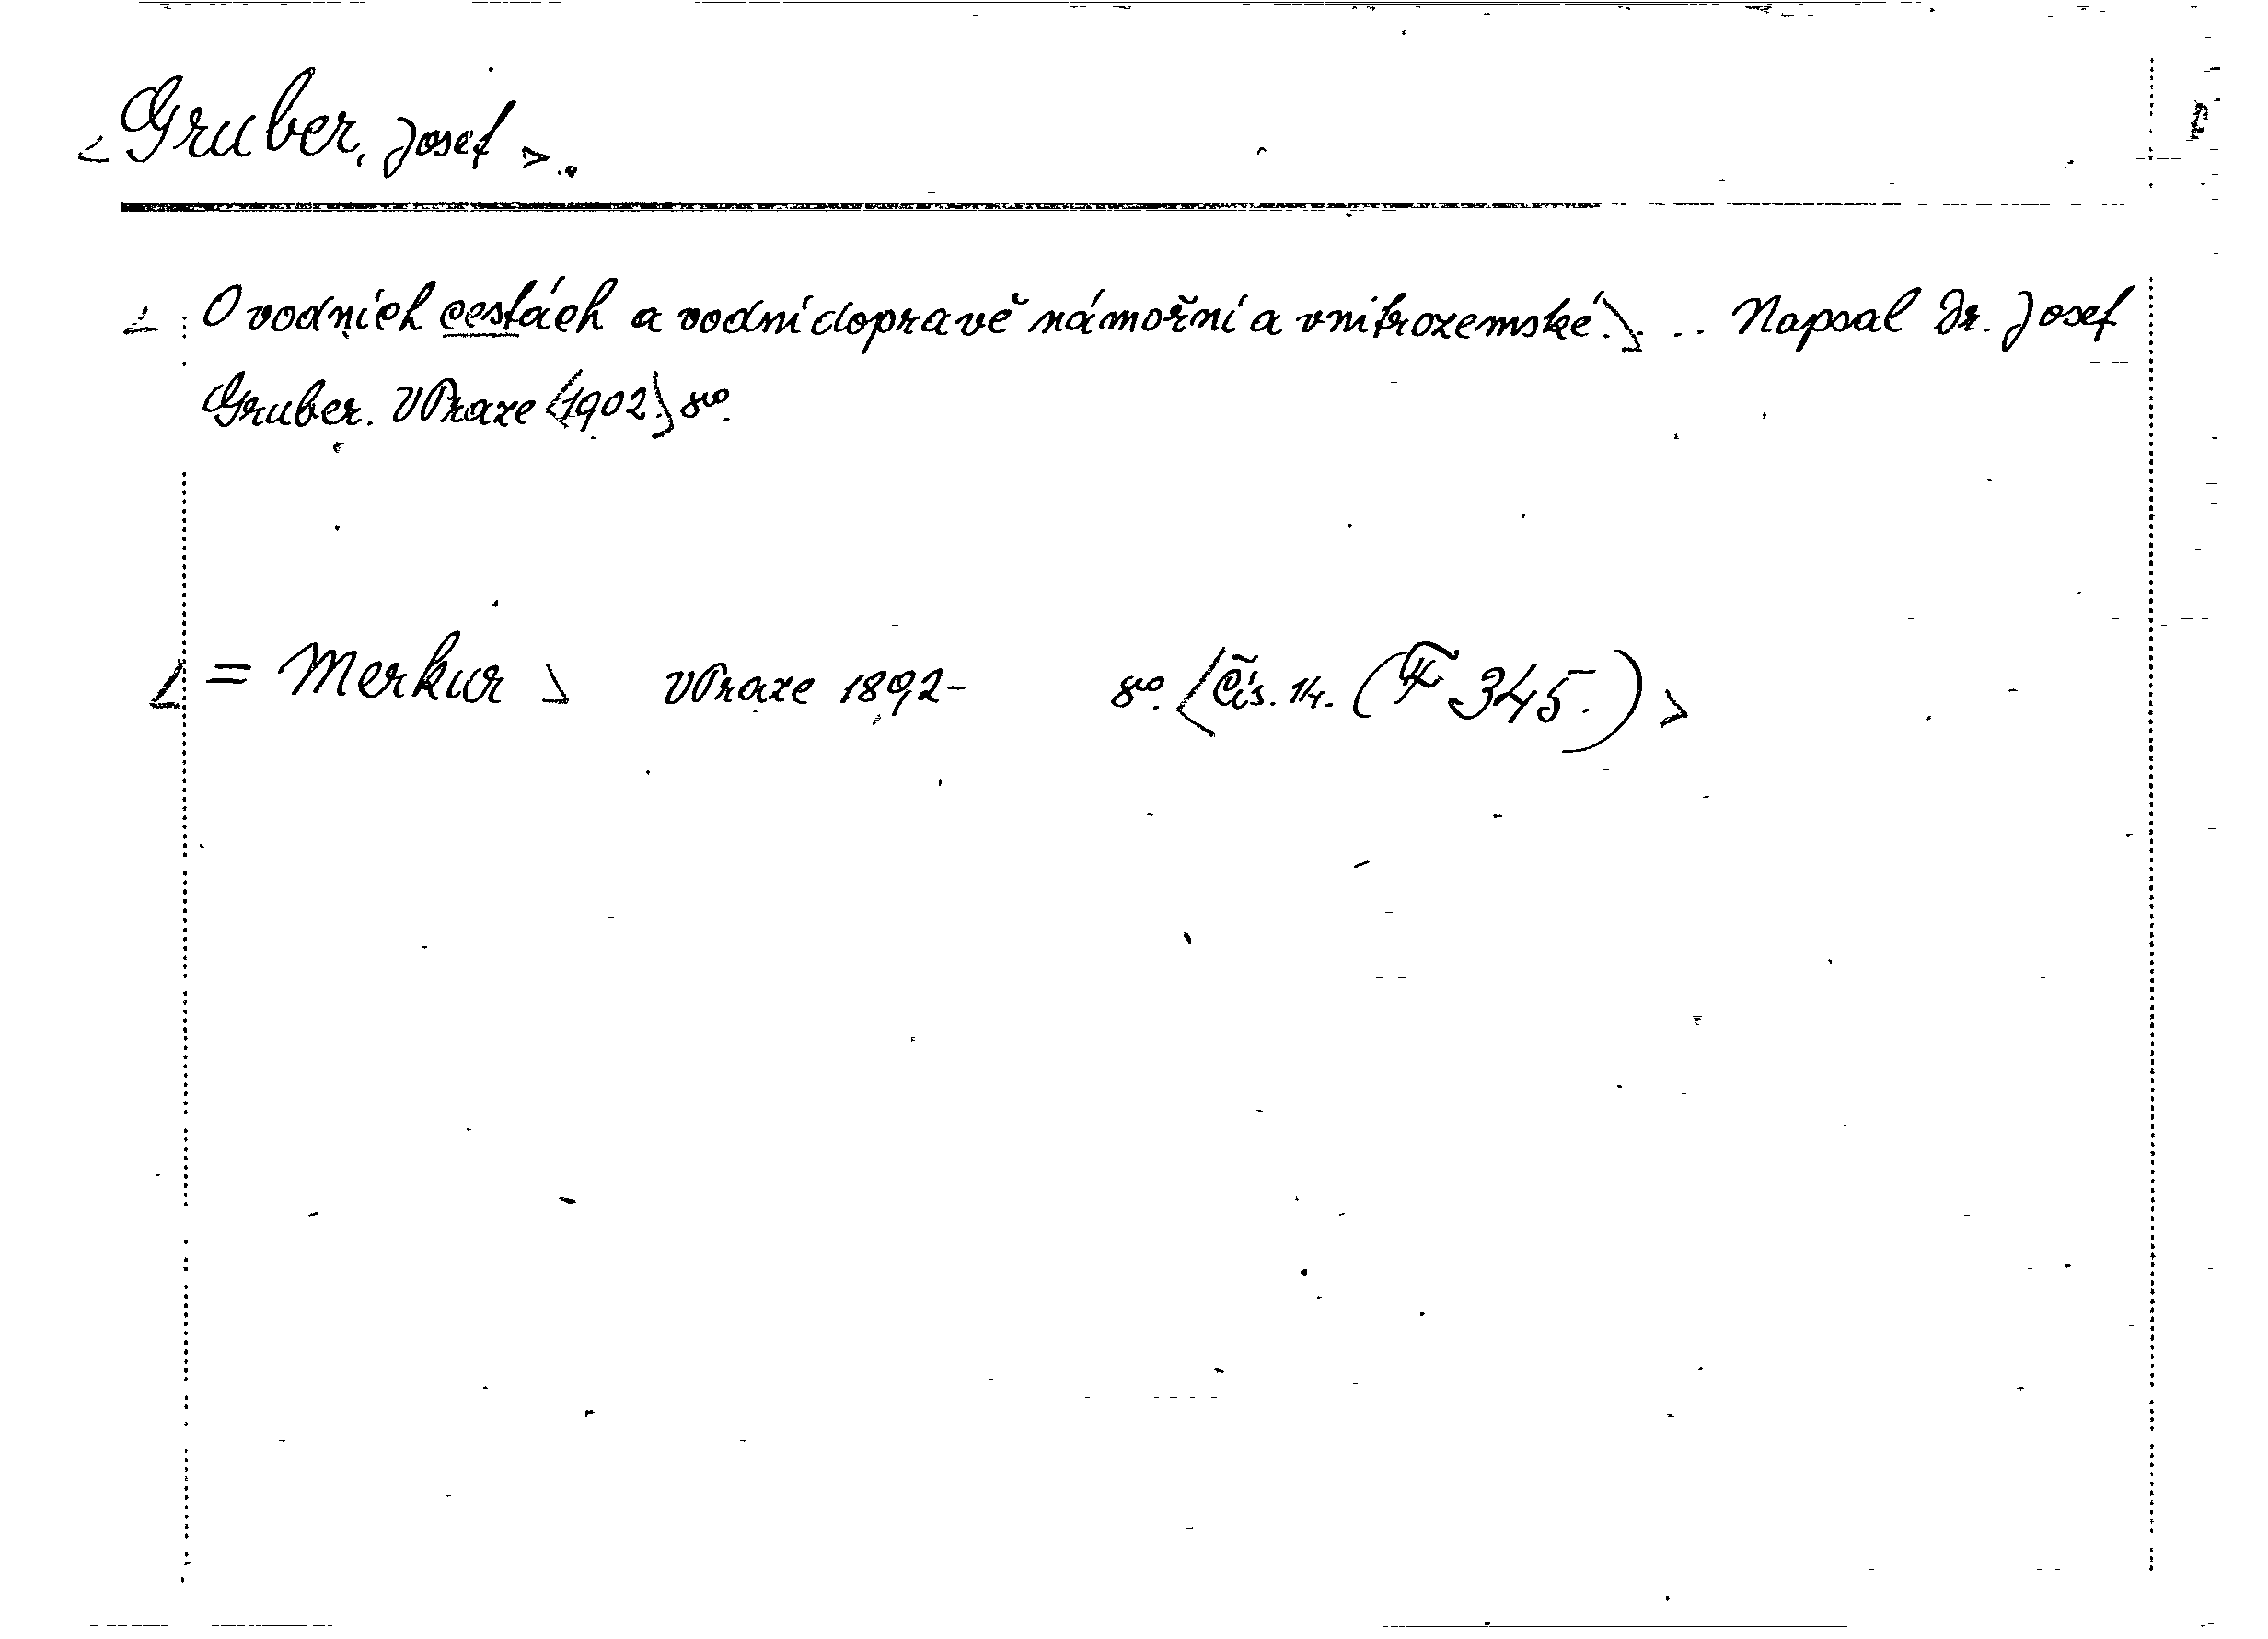 <Gruber, Josef>.
<O vodních cestách a vodní dopravě námořní a vnitrozemské.> ... Napsal Dr. Josef
Gruber. V Praze <1902> 8vo.
<= Merkur> v Praze 1892- 8vo. <Čís. 14. (F 345.)>